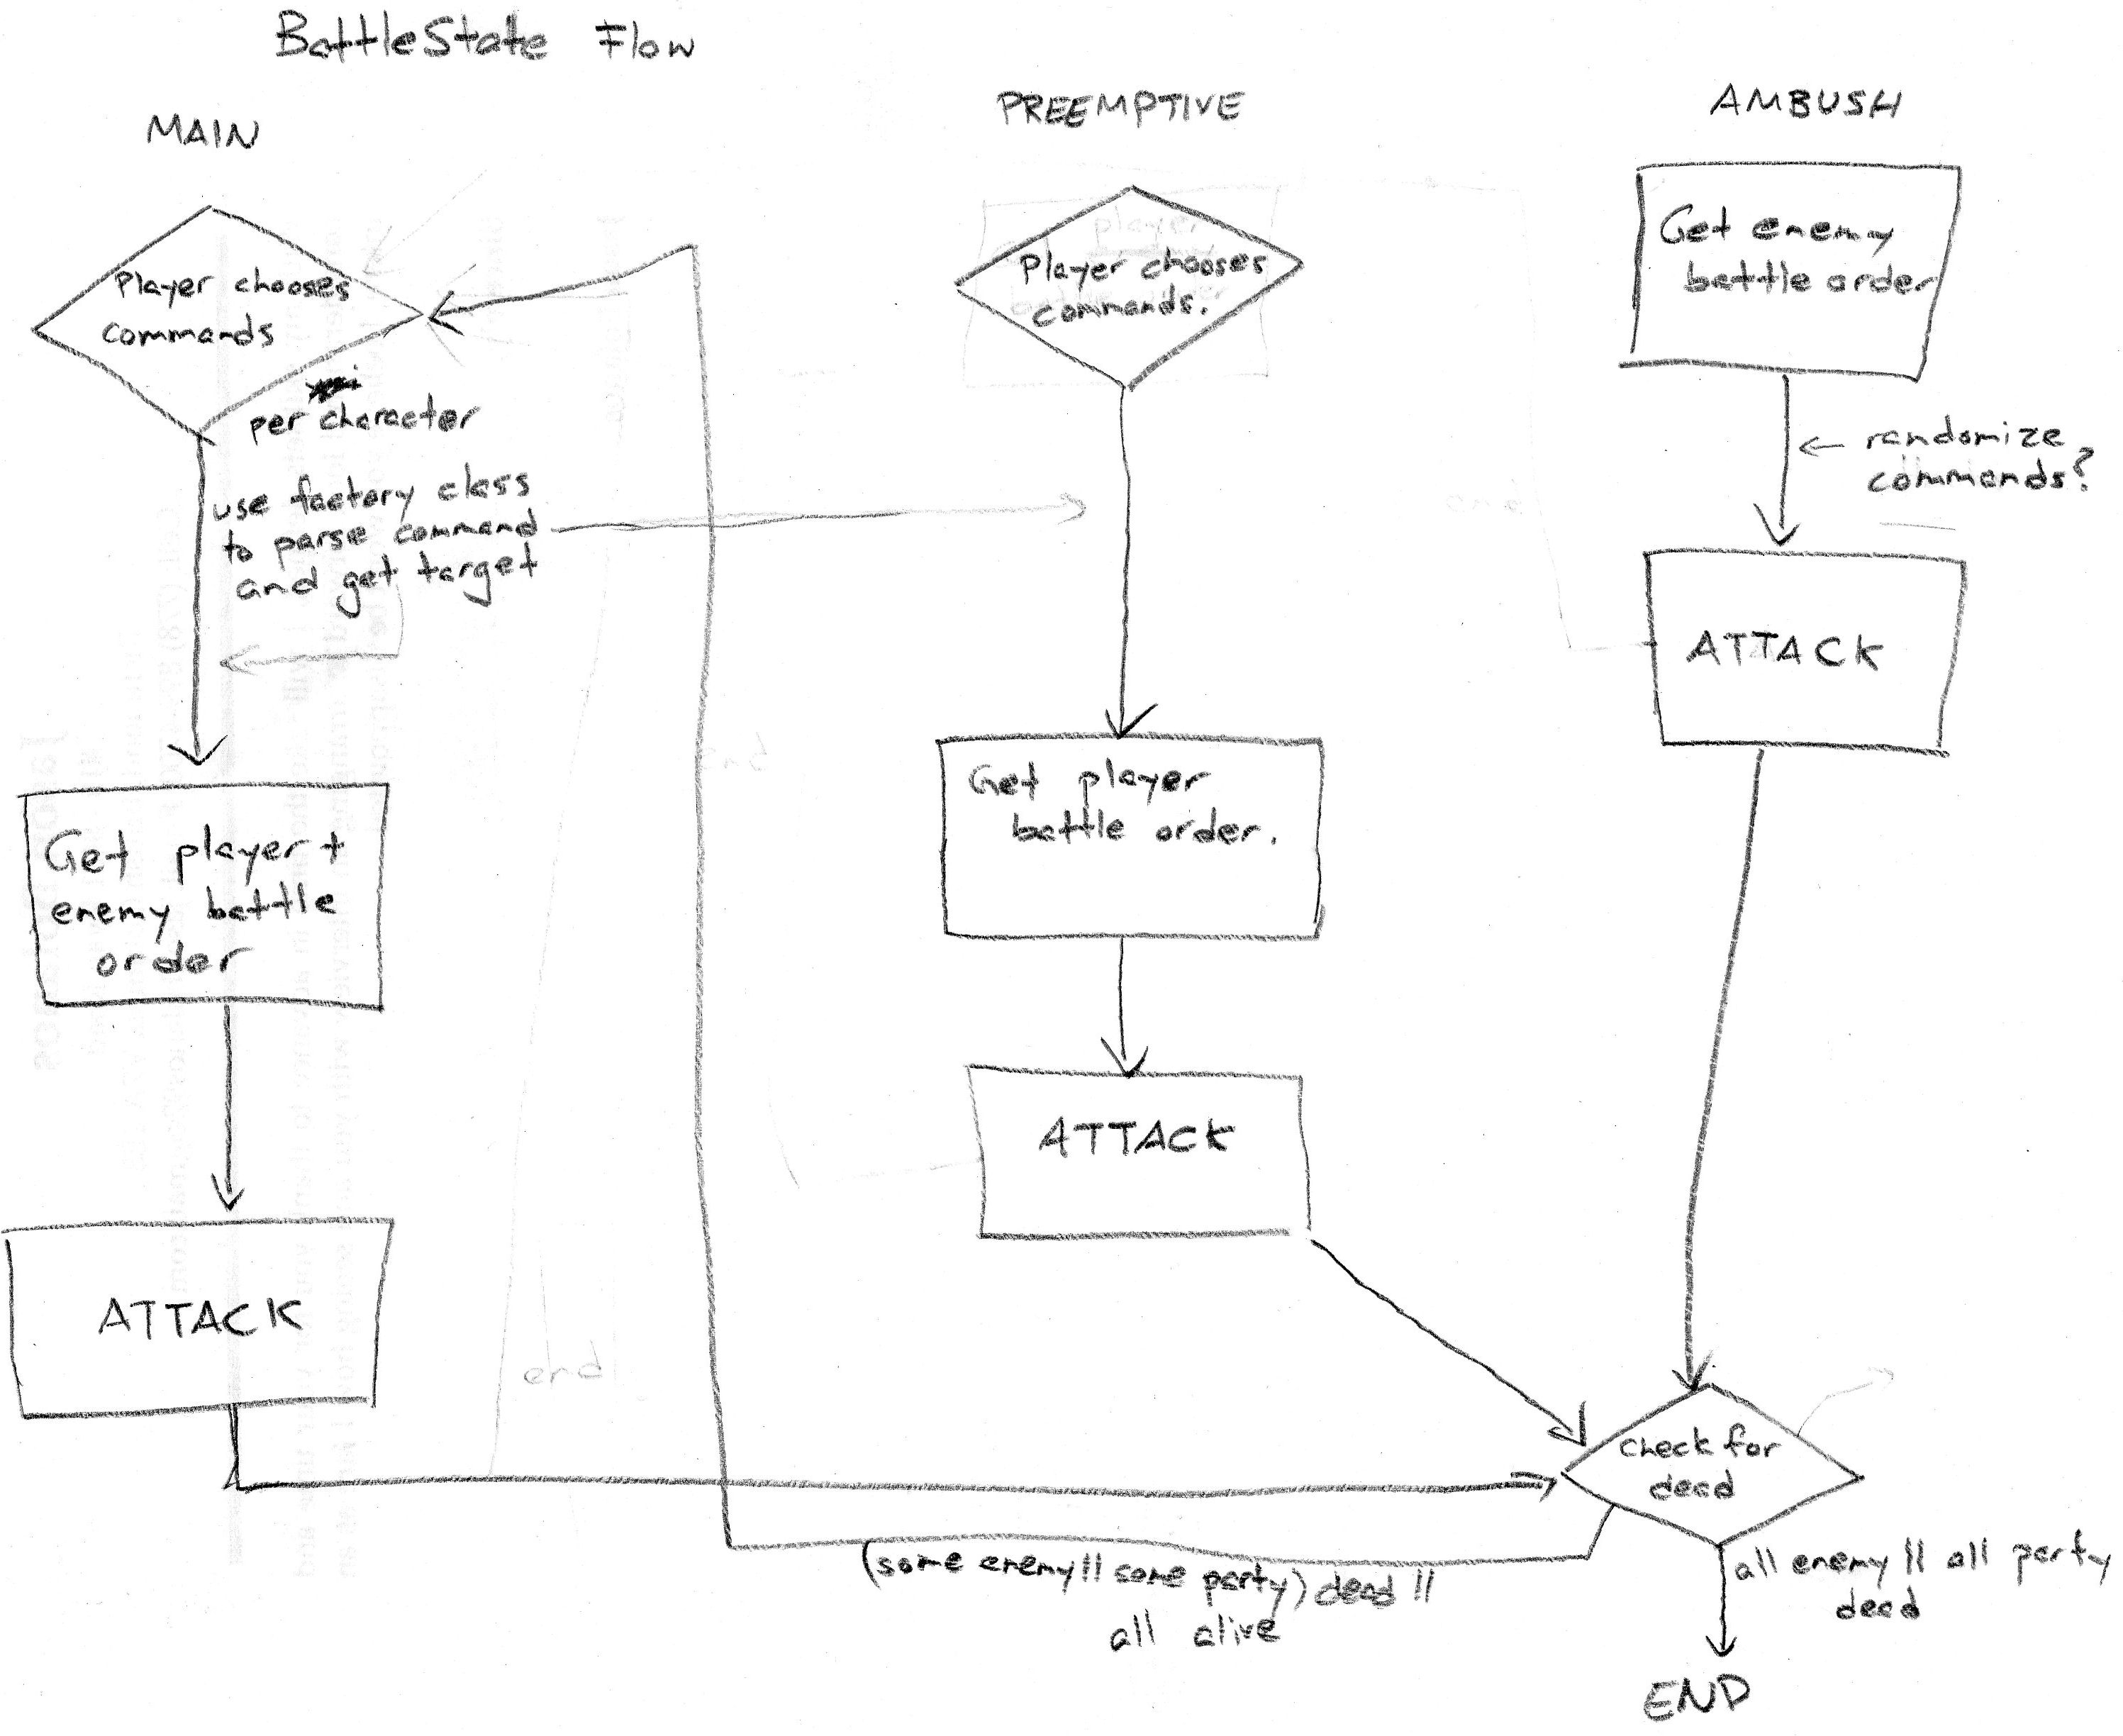 BattleState Flow
MAIN
PREEMPTIVE
AMBUSH
Player chooses
commands
per character
use factory class
to parse command
and get target
Get player +
enemy battle
order
ATTACK
Player chooses
commands.
Get player
battle order.
ATTACK
Get enemy
battle order
← randomize
commands?
ATTACK
check for
dead
(some enemy || some party) dead ||
all alive
all enemy || all party
dead
END
end